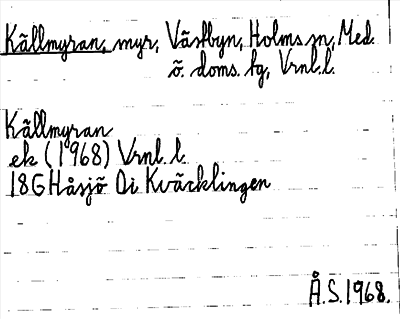 Källmyran, myr, Västbyn, Holms sn, Med.
ö. doms. tg, Vrnl.l.
Källmyran
ek (1968) Vrnl. l.
18G Håsjö Oi Kväcklingen
Å.S. 1968.